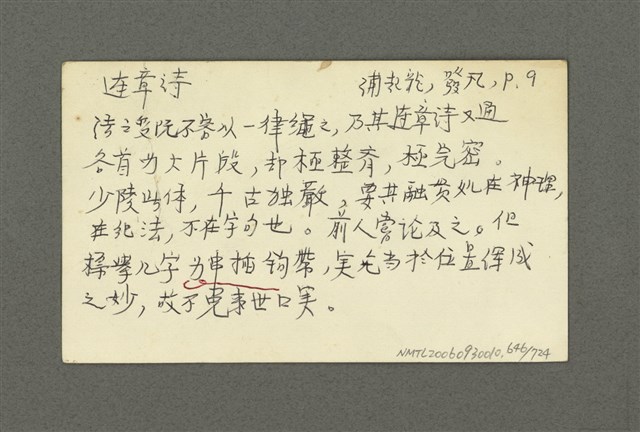 连章诗
浦起龙, 發凡, p. 9
诗之变既不容以一律绳之，乃其连章诗又通
各首为大片段，却極整齐，極完密。
少陵此体，千古独嚴，要其融贯处在神理，
在 法，不在字句也。前人嘗论及之。但
標举几字为串插钩带，実无当於位置浑成
之妙，故不免来世口実。
NMTL20060930010, 646/724